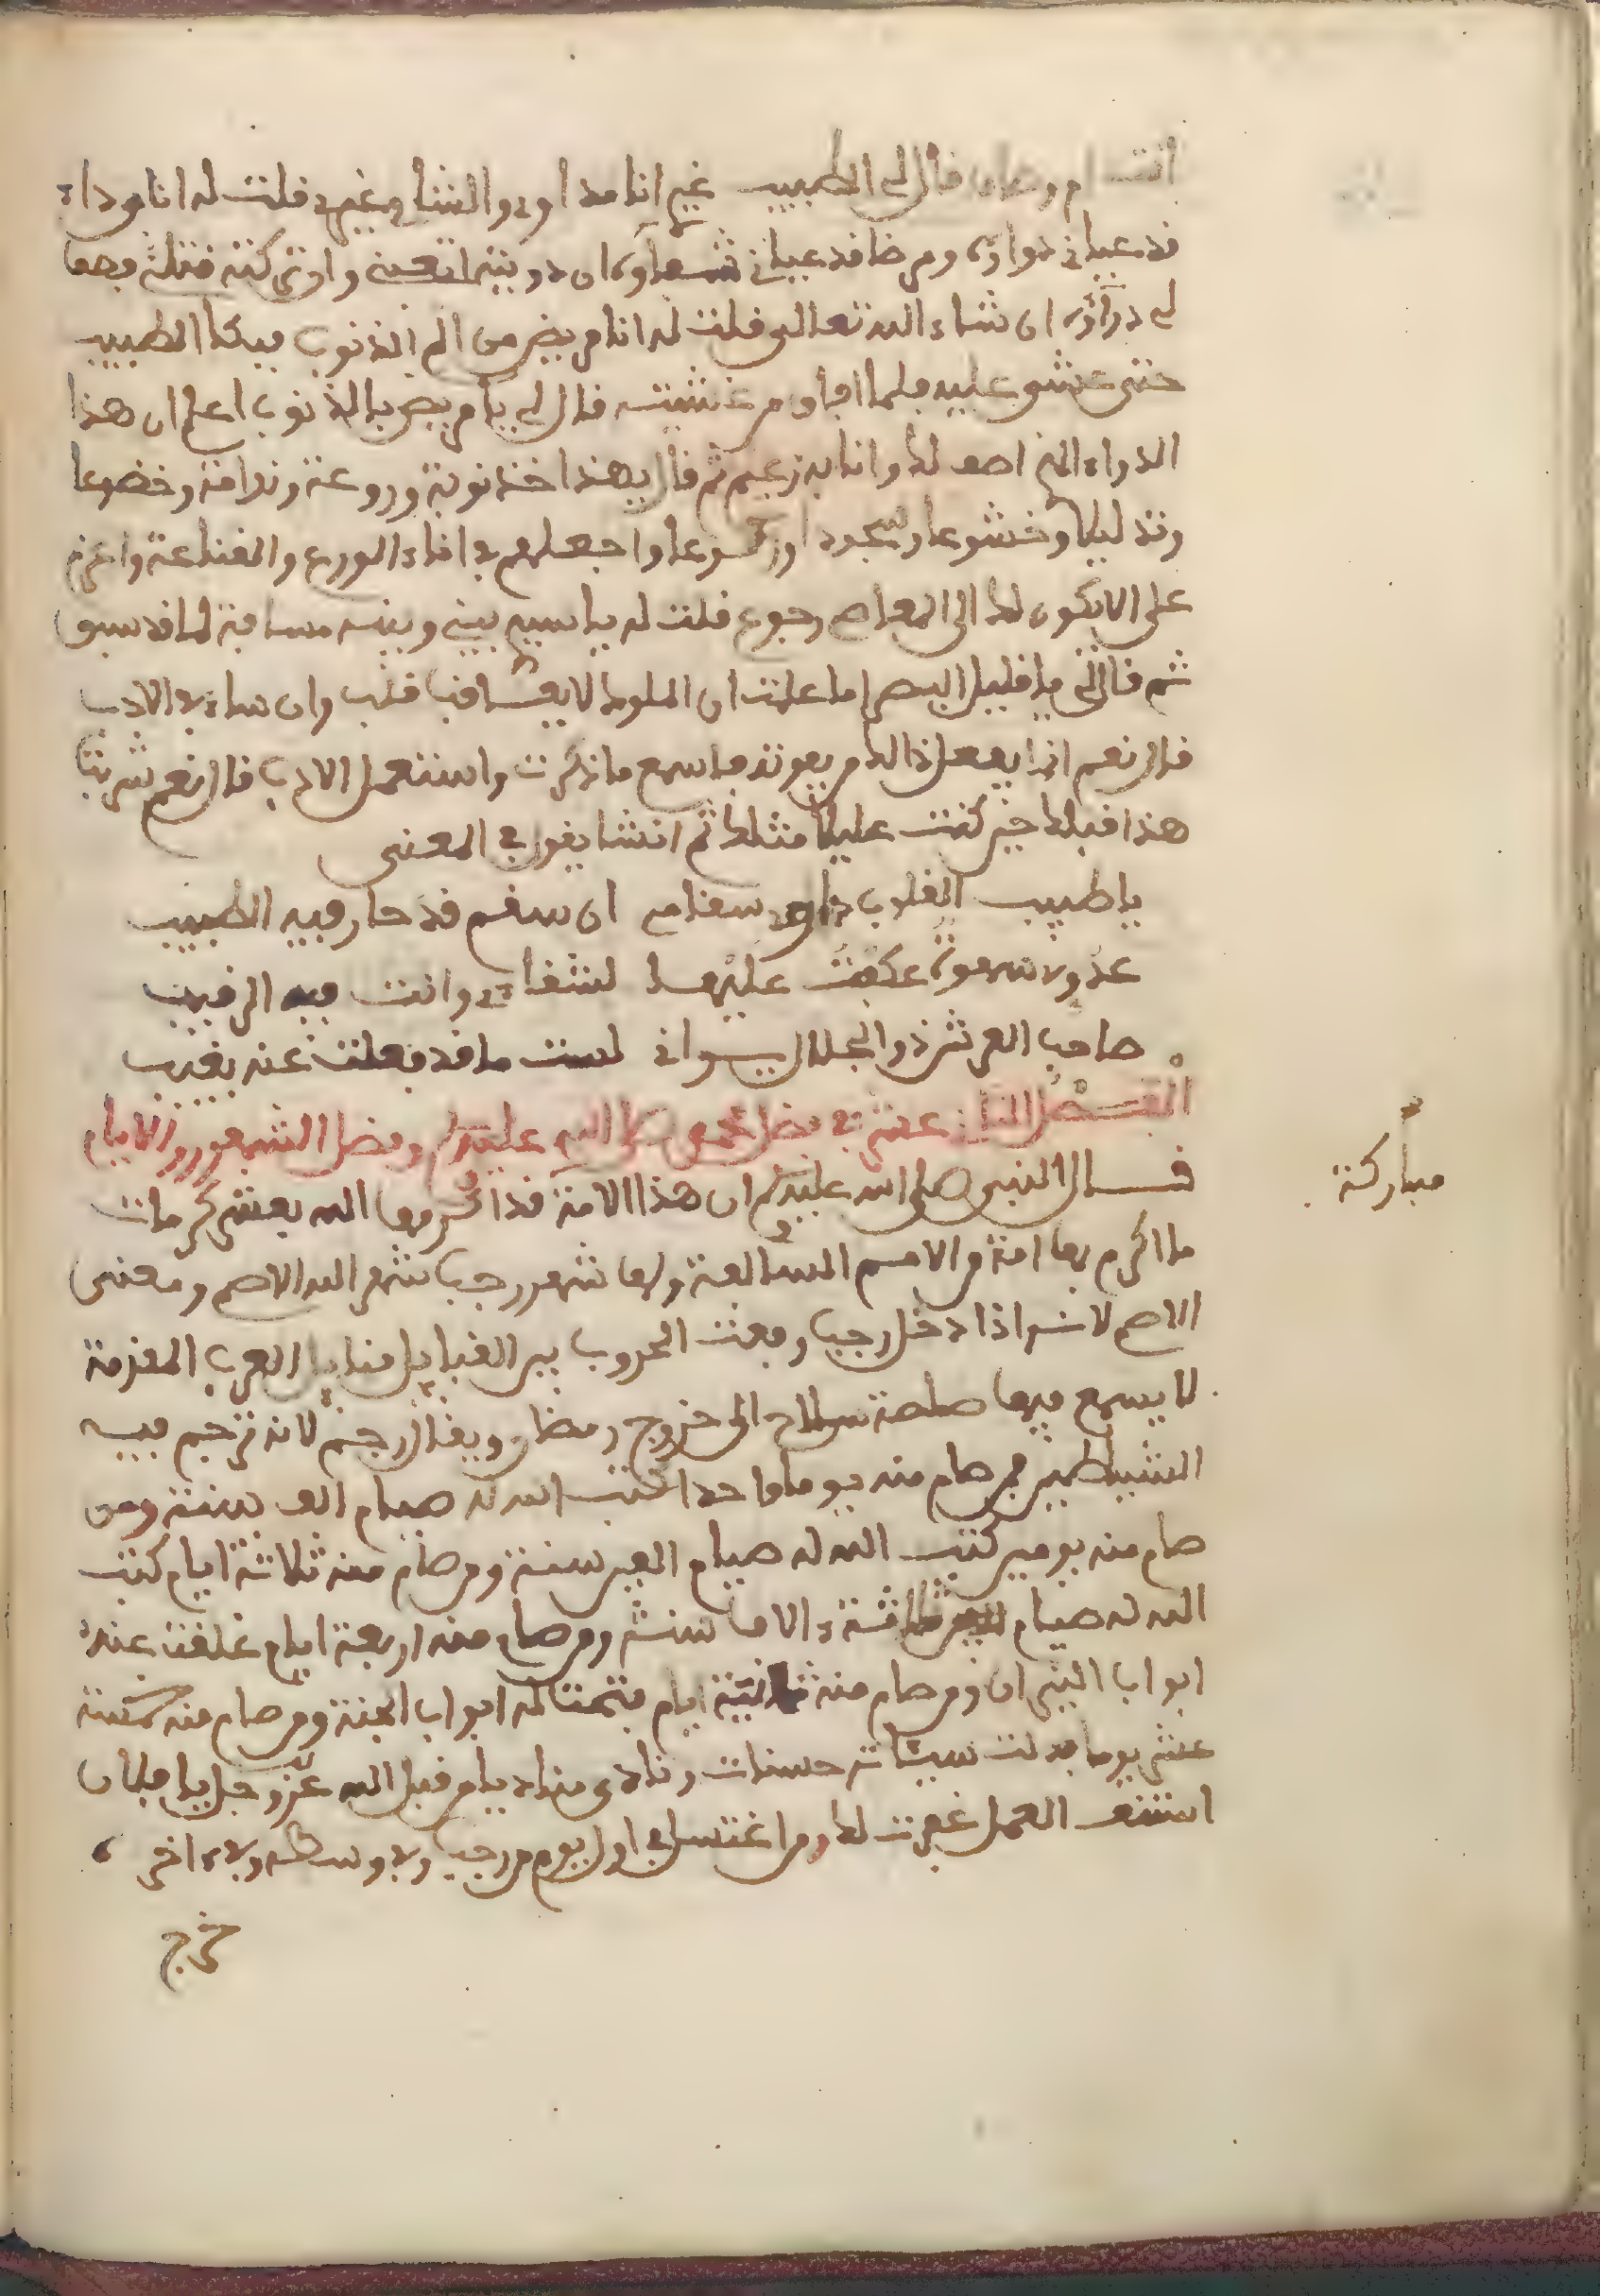 انت قال لي الطبيب غير انا مداوي والشافي غيري فلت له انا وداء
قد عياني دواؤه ومرضا قد عياني شفاؤه ان دويتم وان كنت
لي دواؤه ان شاء الله تعالى قلت له انا مريض من الم الذنوب فبكا الطبيب
حتى غشي عليه فلما افاق من غشيته قال لي يا مريض بالذنوب اعلم ان هذا
الدواء الذي اصف لك وانا به زعيم ثم قال بهذا خذ توبة وروعة وندامة وخضوعا
وتذليلا وخشوعا وسجودا وركوعا واجعلهم في اناء الورع والقناعة واعزم
على الا يكون لك الى المعاصي رجوع قلت له يا سيدي بيني وبينه مسافة لما قد سبق
ثم قال لي يا قليل البصر اما علمت ان الملوك لا يعاقب قلب وان ساء في الادب
قال نعم انما يفعل ذالك مر يعوته فاسمع ما ذكرت واستعمل الادب قال نعم شربت
هذا قبلك حين كنت عليلا مثلك ثم انشا يقول في المعنى
يا طبيب القلوب داوي سقامي ان سقمي قد حار فيه الطبيب
عكفت عليها لشقاءي وانت فيه الرقيب
صاحب العرش ذو الجلال يراني لست ما قد فعلت عنه بغريب
الفصل الثاني عشر في فضل محمد صلى الله عليه وسلم وفضل الشهور والايام
مباركة
قال النبي صلى الله عليه وسلم ان هذا الامة قد اكرمها الله بعشر كرمات
ما اكرم بها امة من الامم السالفة ولها شهر رجب شهر الله الاصم ومعنى
الاصم لانه اذا دخل رجب رفعت الحروب بين القبايل من قبايل العرب المقدمة
لا يسمع فيها صلصة سلاح الى خروج رمضان ويقال رجم لانه ترجم فيه
الشياطين فمن صام منه يوما واحدا كتب الله له صيام الف سنة ومن
صام منه يومين كتب الله له صيام الفين سنة ومن صام منه ثلاثة ايام كتب
الله له صيام ثلاثة ءالاف سنة ومن صام منه اربعة ايام غلقت عنه
ابواب النيران ومن صام منه ثمانية ايام فتحت له ابواب الجنة ومن صام منه خمسة
عشر يوما بدلت سيئاته حسنات ونادى مناد يا من قبل الله عز وجل يا فلان
استنف العمل غفرت لك ومن اغتسل في اول يوم من رجب وفي وسطه وفي ءاخر
خرج